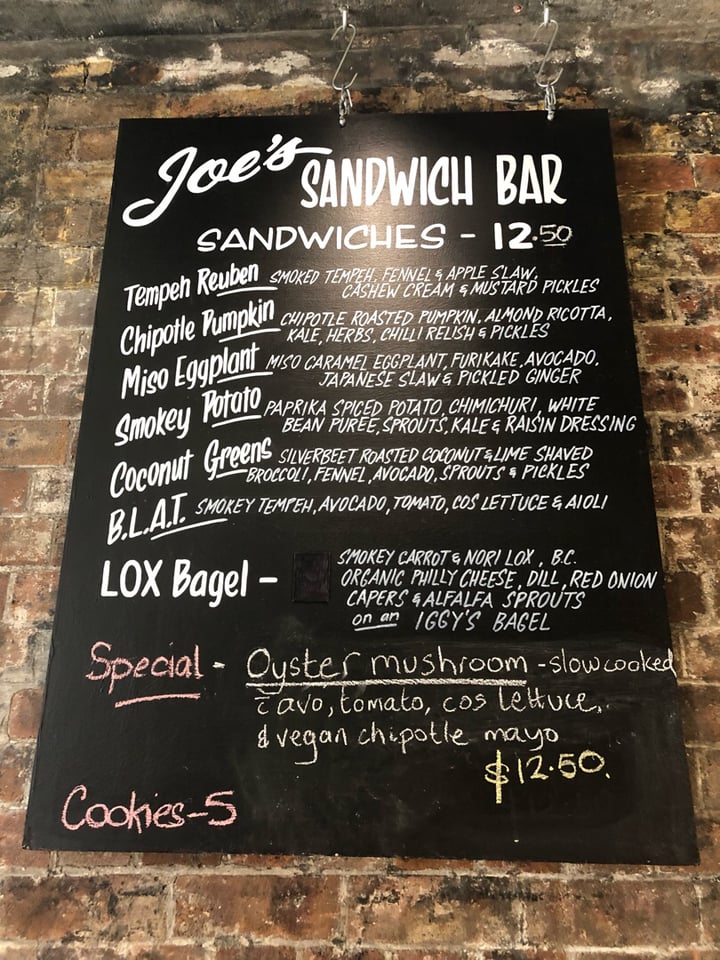 Joe's SANDWICH BAR
SANDWICHES - 12.50
Tempeh Reuben SMOKED TEMPEH, FENNEL & APPLE SLAW,
CASHEW CREAM & MUSTARD PICKLES
Chipotle Pumpkin CHIPOTLE ROASTED PUMPKIN, ALMOND RICOTTA,
KALE, HERBS, CHILLI RELISH & PICKLES
Miso Eggplant MISO CARAMEL EGGPLANT, FURIKAKE, AVOCADO,
JAPANESE SLAW & PICKLED GINGER
Smokey Potato PAPRIKA SPICED POTATO, CHIMICHURI, WHITE
BEAN PUREE, SPROUTS, KALE & RAISIN DRESSING
Coconut Greens SILVERBEET ROASTED COCONUT & LIME SHAVED
BROCCOLI, FENNEL, AVOCADO, SPROUTS & PICKLES
B.L.A.T. SMOKEY TEMPEH, AVOCADO, TOMATO, COS LETTUCE & AIOLI
LOX Bagel - SMOKEY CARROT & NORI LOX, B.C.
ORGANIC PHILLY CHEESE, DILL, RED ONION
CAPERS & ALFALFA SPROUTS
on an IGGY'S BAGEL
Special - Oyster mushroom - slow cooked
c̄ avo, tomato, cos lettuce,
& vegan chipotle mayo
$12.50.
Cookies - 5